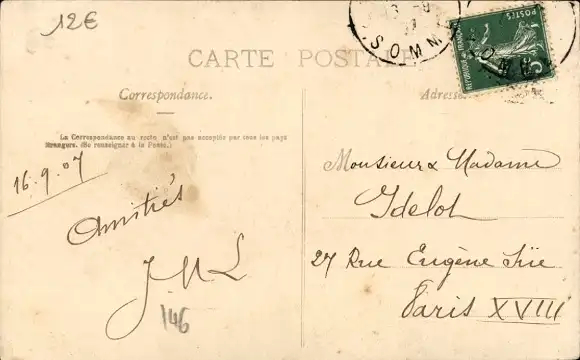 12€
CARTE POSTALE
Correspondance.
Adresse
La Correspondance au recto n'est pas acceptée par tous les pays
étrangers. (Se renseigner à la Poste.)
16.9.07
Amitiés
146
SOMM
POSTES
Monsieur & Madame
Idelot
27 Rue Eugène Süe
Paris XVIII